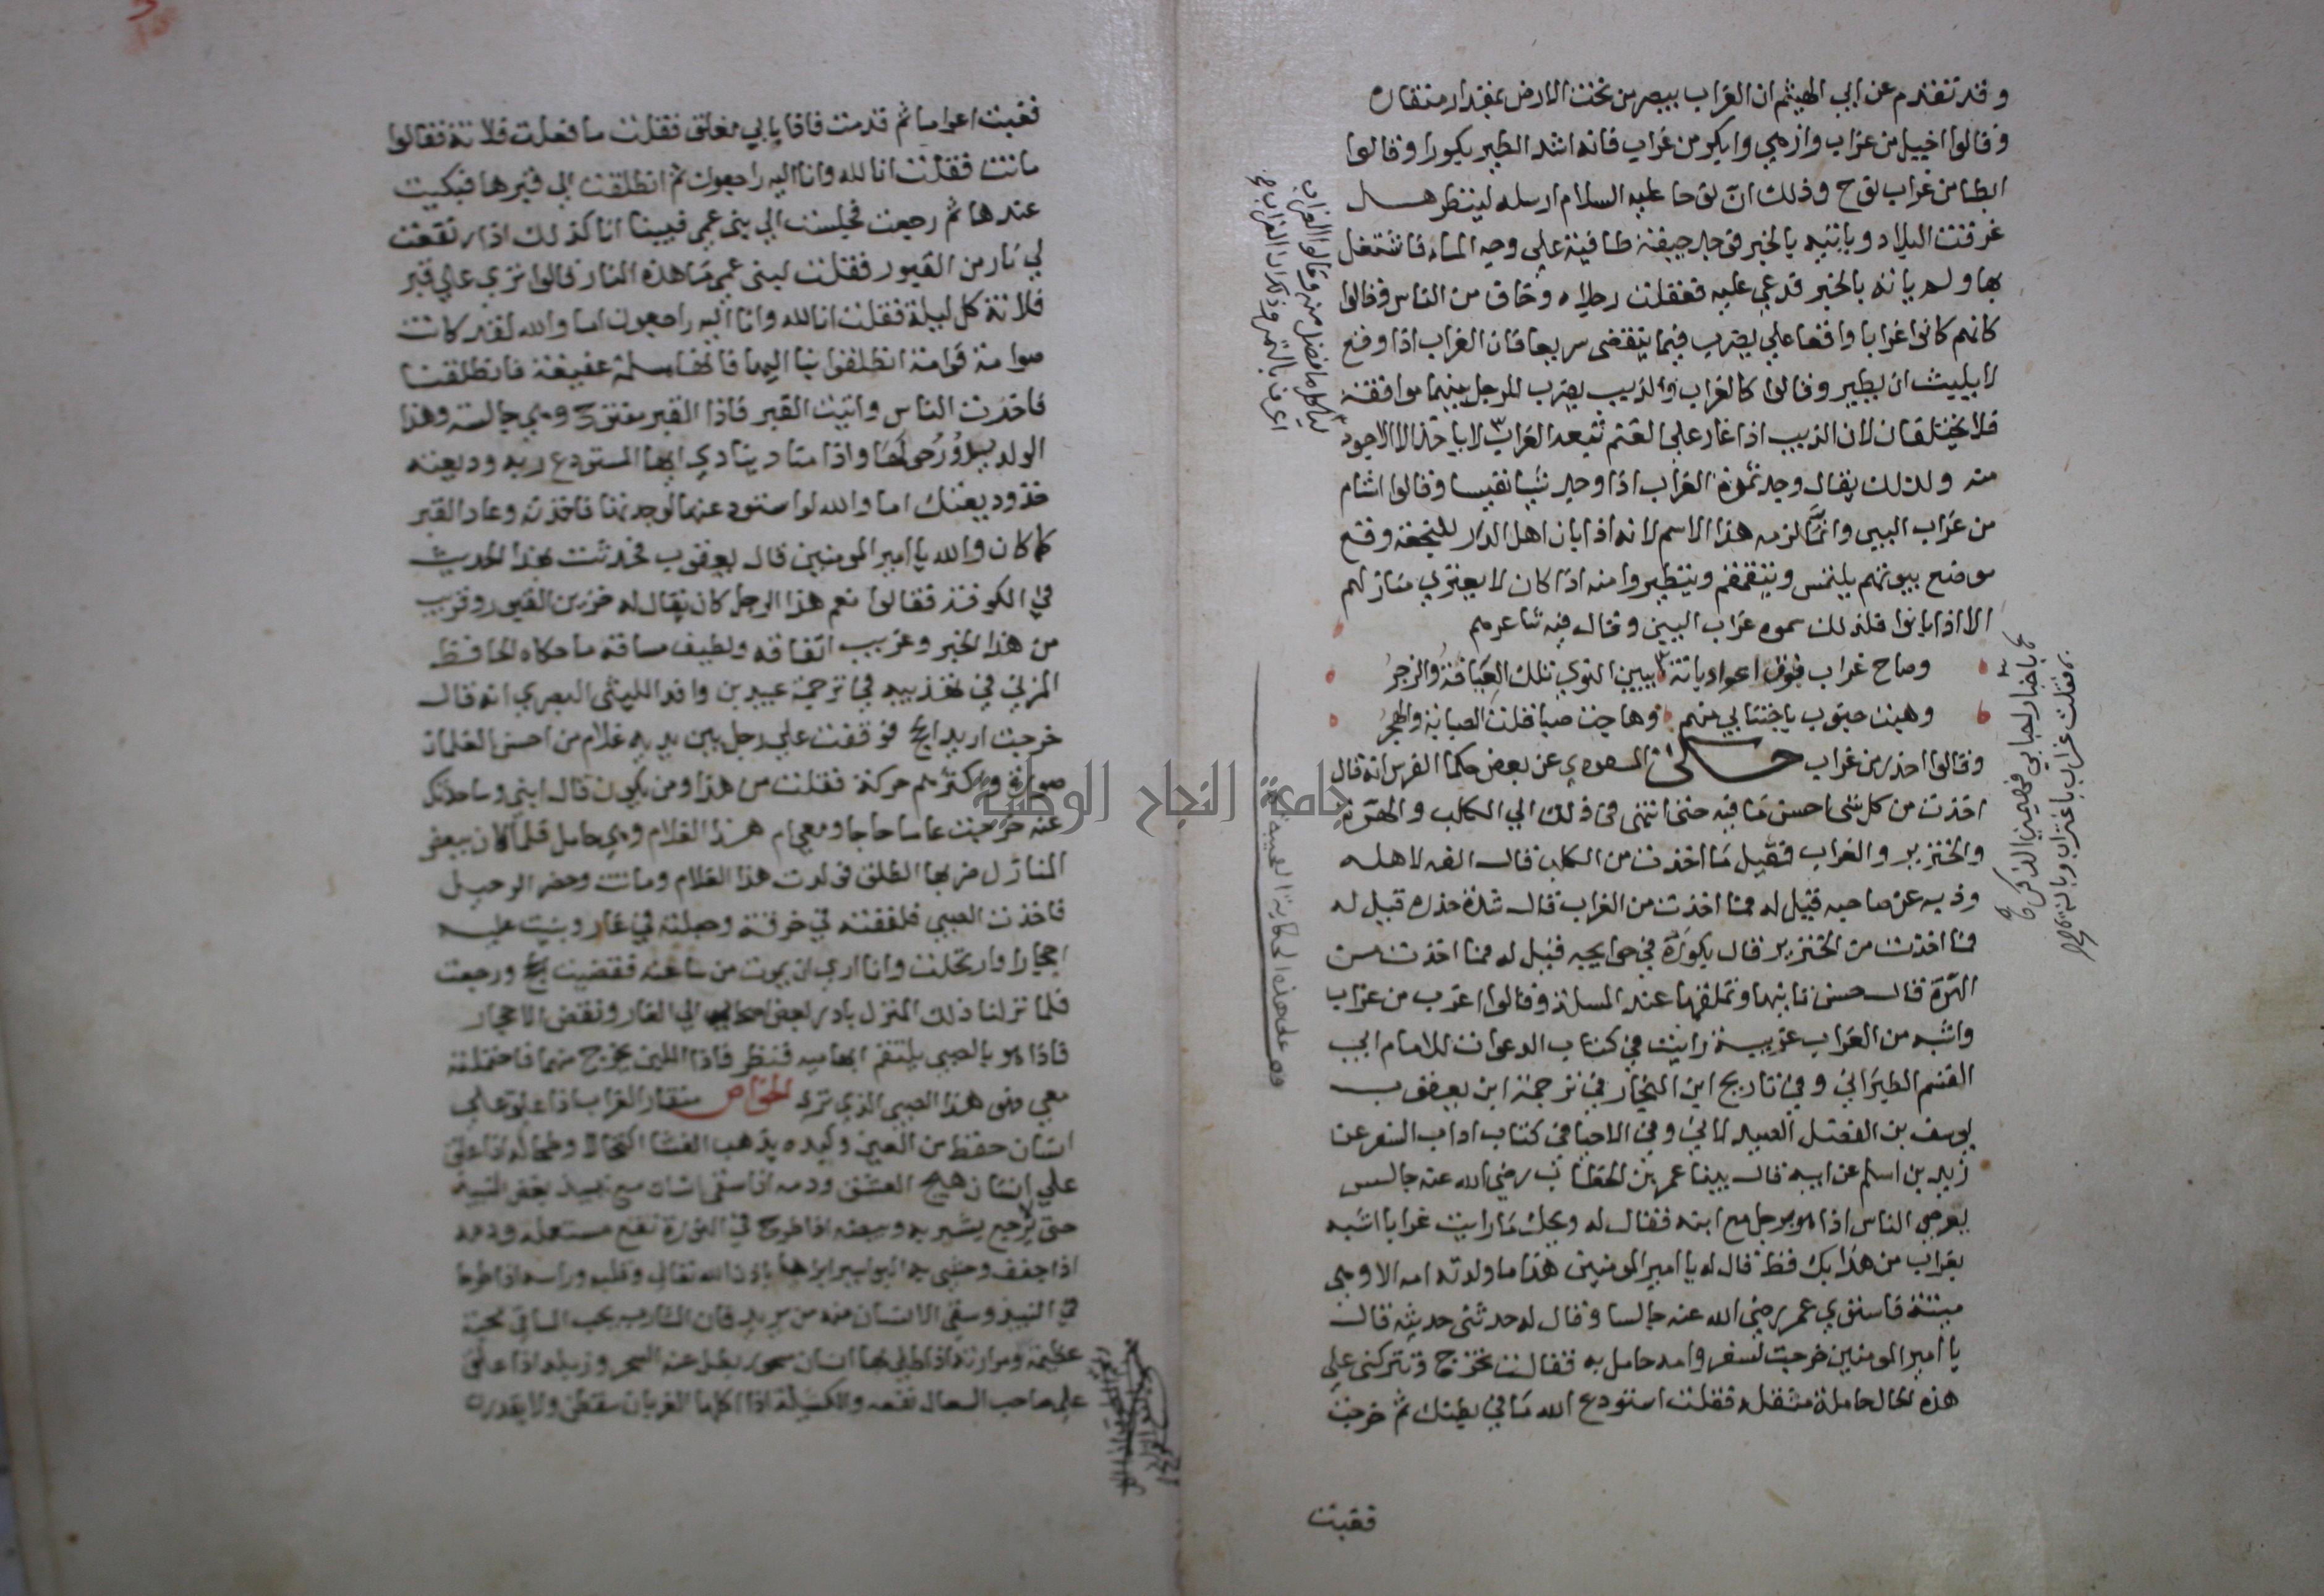 وقد تقدم عن ابي الهيثم ان الغراب يبصر من تحت الارض بمقدار منقاره
وقالوا اخيل من غراب وازهي وابكر من غراب فانه اشد الطير بكورا وقالوا
ابطا من غراب نوح وذلك ان نوحا عليه السلام ارسله لينظر هل
غرقت البلاد وياتيه بالخبر فوجد جيفة طافية علي وجه الماء فاشتغل
بها ولم ياته بالخبر فدعي عليه فعقلت رجلاه وخاف من الناس وقالوا
كانهم كانوا غرابا واقعا علي يضرب فيما ينقضى سريعا فان الغراب اذا وقع
لا يلبث ان يطير وقالوا كالغراب والذيب يضرب للرجل بينهما موافقة
فلا يختلفان لان الذيب اذا غار علي الغنم تبعه الغراب لا ياخذ الا الاجود
منه ولذلك يقال وجد تمرة الغراب اذا وجد شيا نفيسا وقالوا اشام
من غراب البين وانما لزمه هذا الاسم لانه اذا بان اهل الدار للنجعة وقع
موضع بيوتهم يلتمس ويتقمقم ويتطيروا منه اذا كان لا يعتري منازلهم
الا اذا بانوا فلذلك سموه غراب البين وقال فيه شاعرهم
وصاح غراب فوق اعواد بانة ببين النوي تلك العيافة والزجر
وهبت جنوب باجتنابي منهم وهاجت صبا قلت الصبابة والهجر
وقالوا احذر من غراب حكى المسعودي عن بعض حكما الفرس انه قال
اخذت من كل شى احسن ما فيه حتى انتهى فى ذلك الي الكلب والهرة
والخنزير والغراب فقيل ما اخذت من الكلب قال الفه لاهله
وذبه عن صاحبه قيل له فما اخذت من الغراب قال شدة حذره قيل له
فما اخذت من الخنزير قال بكوره في حوايجه قيل له فما اخذت من
الهرة قال حسن تانيها وتملقها عند المسلة وقالوا اغرب من غراب
واشبه من الغراب غريبة رايت في كتاب الدعوات للامام ابي
القسم الطبراني وفي تاريخ ابن النجار في ترجمة ابن يعقوب
يوسف بن الفضل الصيدلاني وفي الاحيا في كتاب اداب السفر عن
زيد بن اسلم عن ابيه قال بينا عمر بن الخطاب رضي الله عنه جالس
يعرض الناس اذا هو برجل مع ابنه فقال له ويحك ما رايت غرابا اشبه
بغراب من هذا بك قط قال له يا امير المومنين هذا ما ولدته امه الا وهي
ميتة فاستوي عمر رضي الله عنه جالسا وقال له حدثني حديثه قال
يا امير المومنين خرجت لسفر وامه حامل به فقالت تخرج وتتركني علي
هذه الحال حاملة مثقلة فقلت استودع الله ما في بطنك ثم خرجت
فغبت
لياكل ما فضل منه وقالوا الغراب
اعرف بالتمر وذلك ان الغراب
فقلت غراب باغتراب وبانة
وعلي هذه الحكاية الغريبة
فغبت اعواما ثم قدمت فاذا بابي مغلق فقلت ما فعلت فلانة فقالوا
ماتت فقلت انا لله وانا اليه راجعون ثم انطلقت الي قبرها فبكيت
عندها ثم رجعت فجلست الي بني عمي فبينا انا كذلك اذا رتفعت
لي نار من القبور فقلت لبني عمي ما هذه النار قالوا تري علي قبر
فلانة كل ليلة فقلت انا لله وانا اليه راجعون اما والله لقد كانت
صوامة قوامة انطلقوا بنا اليها فانها مسلمة عفيفة فانطلقنا
فاخذت الناس واتيت القبر فاذا القبر مفتوح وهي جالسة وهذا
الولد يدور حولها واذا مناد ينادي ايها المستودع ربه وديعته
خذ وديعتك اما والله لو استودعتهما لوجدتهما فاخذته وعاد القبر
كما كان والله يا امير المومنين قال يعقوب فحدثت بهذا الحديث
في الكوفة فقالوا نعم هذا الرجل كان يقال له خزين القبور وقريب
من هذا الخبر وغريب اتفاقه ولطيف مساقه ما حكاه الحافظ
المزني في تهذيبه في ترجمة عبيد بن واقد الليثي البصري انه قال
خرجت اريد الحج فوقفت علي رجل بين يديه غلام من احسن الغلمان
صورة واكثرهم حركة فقلت من هذا ومن يكون قال ابني وساحدثك
عنه خرجت عاما حاجا ومعي ام هذا الغلام وهي حامل فلما كان ببعض
المنازل ضربها الطلق فولدت هذا الغلام وماتت وحضر الرحيل
فاخذت الصبي فلففته في خرقة وجعلته في غار وبنيت عليه
احجارا وارتحلت وانا اري ان يموت من ساعته فقضيت الحج ورجعت
فلما نزلنا ذلك المنزل بادر بعض اصحابي الي الغار ونقض الاحجار
فاذا هو بالصبي يلتقم ابهاميه فنظر فاذا اللبن يخرج منهما فاحتملته
معي فهو هذا الصبي الذي تره الخواص منقار الغراب اذا علق علي
انسان حفظ من العين وكبده يذهب الغشا اكتحالا وطحاله اذا علق
علي انسان هيج العشق ودمه اذا سقى انسان مع نبيذ بغض النبيذ
حتى لا يرجع يشربه
اذا جفف وحشي به البواسير ابراها باذن الله تعالى وقلبه وراسه اذا طرحا
في النبيذ وسقي الانسان منه من يريد فان الشارب يحب الساقي محبة
عظيمة ومرارته اذا طلي بها انسان مسحور بطل عنه السحر وزبله اذا علق
علي صاحب السعال نفعه
جامعة النجاح الوطنية